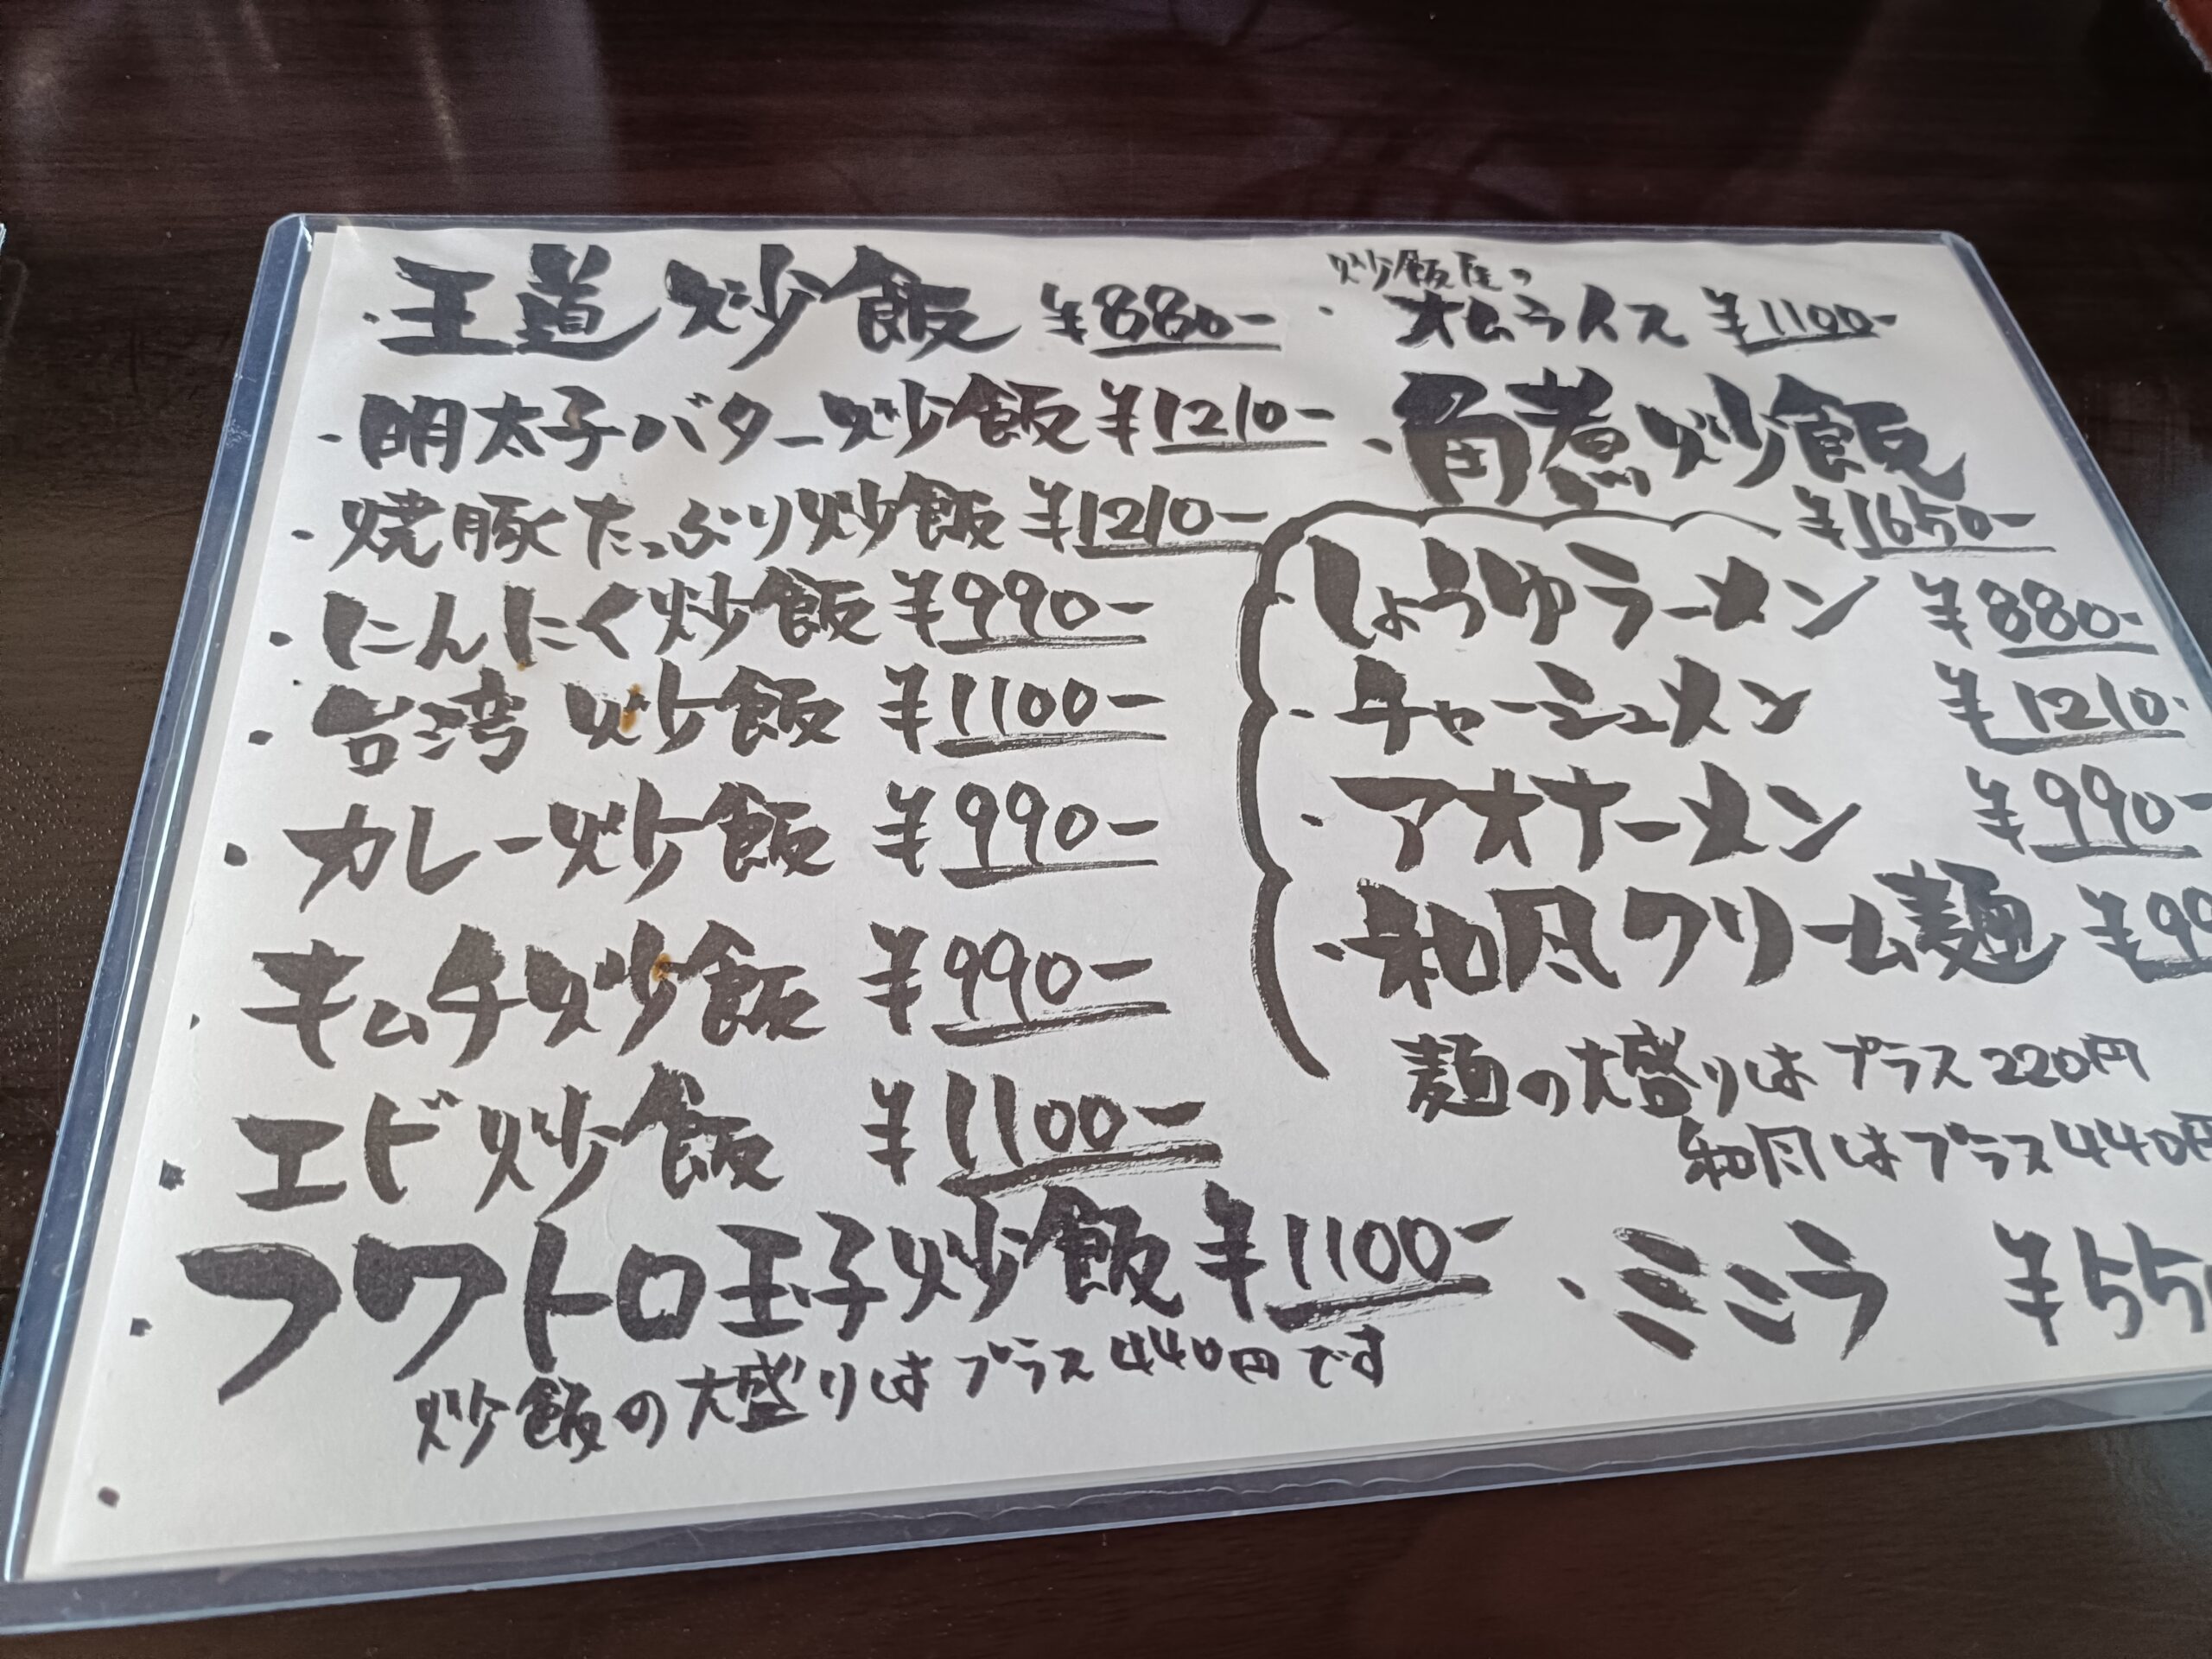 ・王道炒飯 ¥880-
・明太子バター炒飯 ¥1210-
・焼豚たっぷり炒飯 ¥1210-
・にんにく炒飯 ¥990-
・台湾炒飯 ¥1100-
・カレー炒飯 ¥990-
・キムチ炒飯 ¥990-
・エド炒飯 ¥1100-
・フワトロ玉子炒飯 ¥1100-
炒飯の大盛りはプラス440円です
炒飯屋の
・オムライス ¥1100-
・角煮炒飯
¥1650-
・しょうゆラーメン ¥880-
・チャーシュメン ¥1210-
・アオナーメン ¥990-
・和風クリーム麺 ¥99
麺の大盛りはプラス220円
和風はプラス440円
・ミニラ ¥550